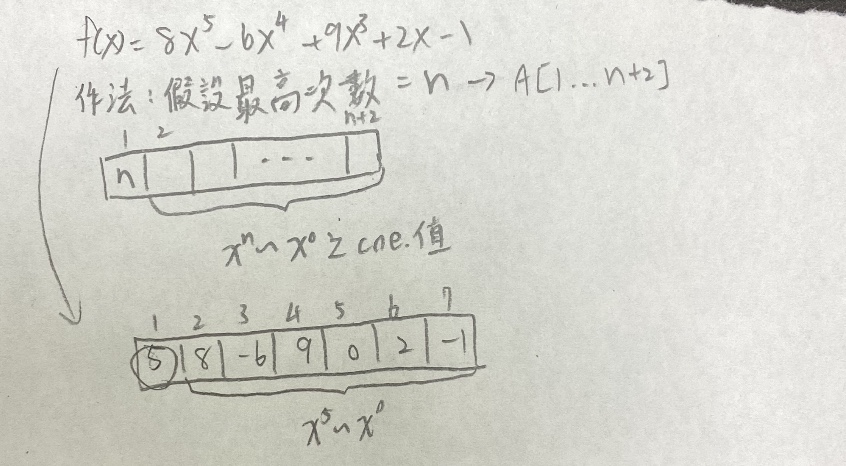 f(x) = 8x⁵ - 6x⁴ + 9x³ + 2x - 1
作法：假設最高次數 = n → A[1...n+2]
1 2 n+2
n ...
xⁿ ~ x⁰ 之 coe. 值
1 2 3 4 5 6 7
5 8 -6 9 0 2 -1
x⁵ ~ x⁰